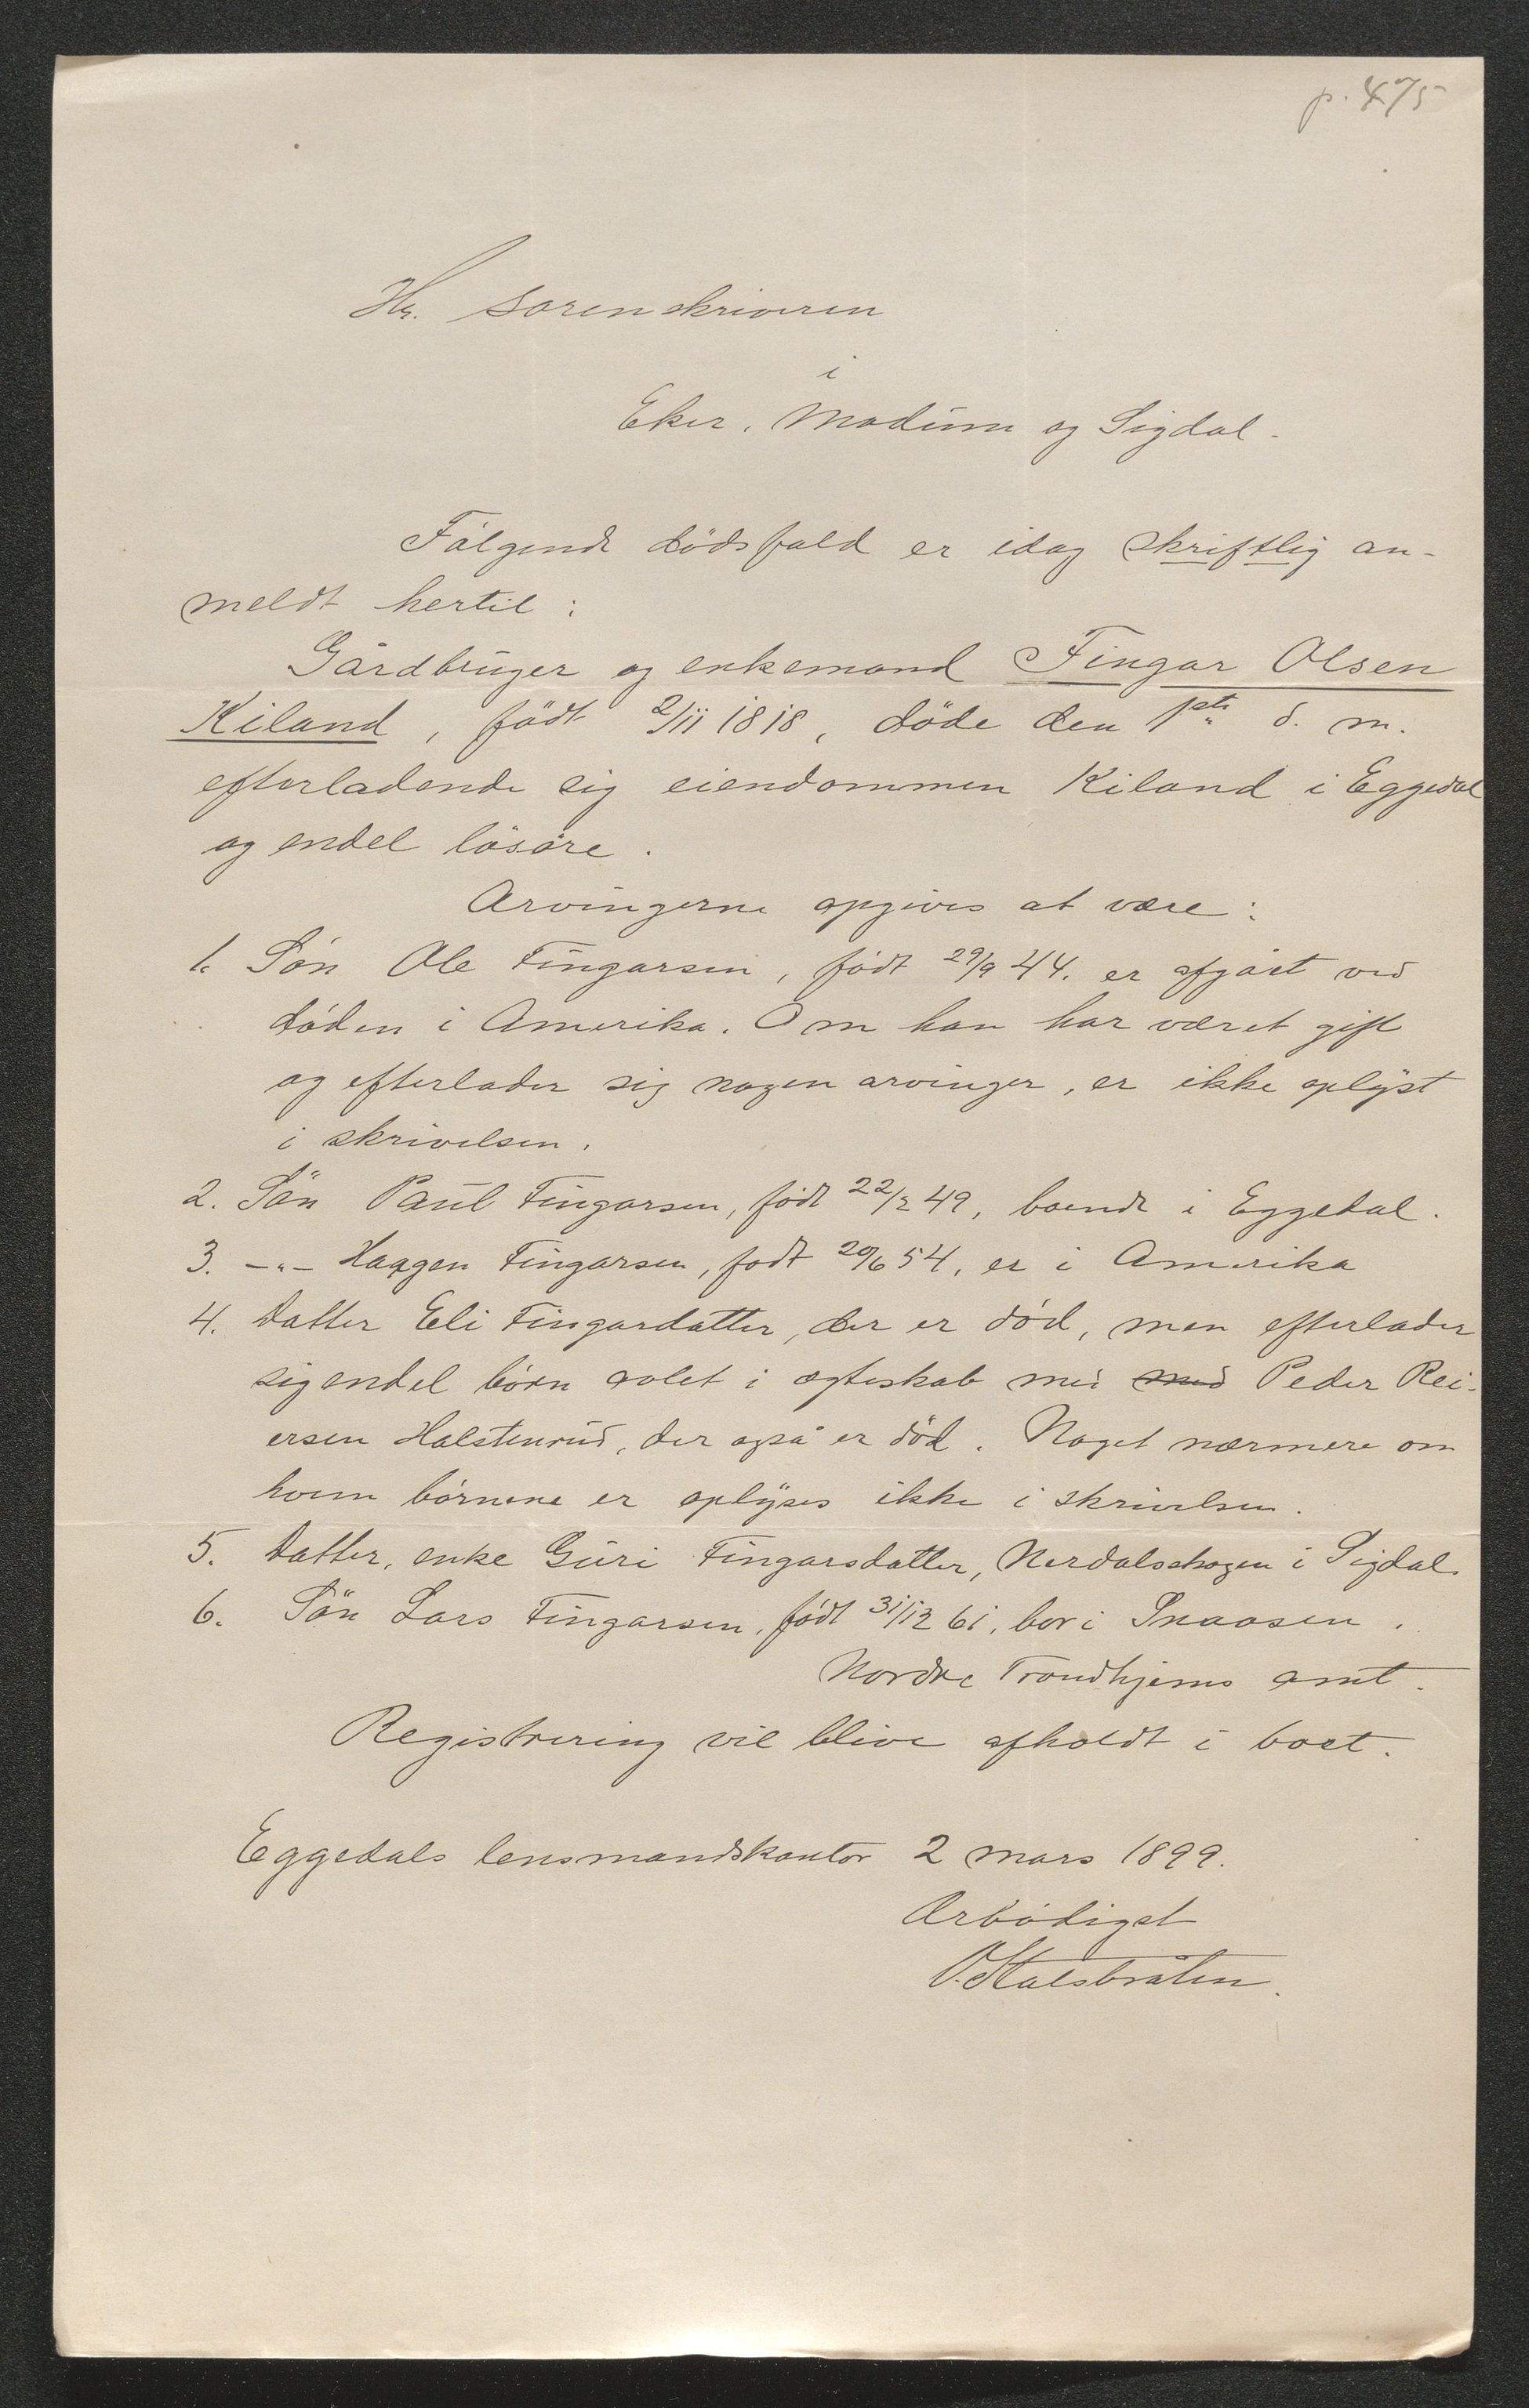 p. 475
Hr. sorenskriveren
i
Eker, Modum og Sigdal.
Følgende dödsfald er idag skriftlig an-
meldt hertil:
Gårdbruger og enkemand Fingar Olsen
Kiland, födt 2/11 1818, döde den 1ste d. m.
efterladende sig eiendommen Kiland i Eggedal
og endel løsøre.
Arvingerne opgives at være:
1. Søn Ole Fingarsen, født 29/9 44. er afgået ved
døden i Amerika. Om han har været gift
og efterlader sig nogen arvinger, er ikke oplyst
i skrivelsen.
2. Søn Paul Fingarsen, født 22/2 49, boende i Eggedal.
3. -"- Haagen Fingarsen, født 20/6 54, er i Amerika
4. Datter Eli Fingardatter, der er död, men efterlader
sig endel börn avlet i ægteskab med med Peder Rei-
ersen Halstenrud, der også er död. Noget nærmere om
hvem börnene er oplyses ikke i skrivelsen.
5. Datter, enke Guri Fingarsdatter, Nerdalsskogen i Sigdal.
6. Sön Lars Fingarsen, født 31/12 61, bor i Snaasen.
Nordre Trondhjems amt.
Registrering vil blive afholdt i boet.
Eggedals lensmandskontor 2 mars 1899.
Ærbødigst